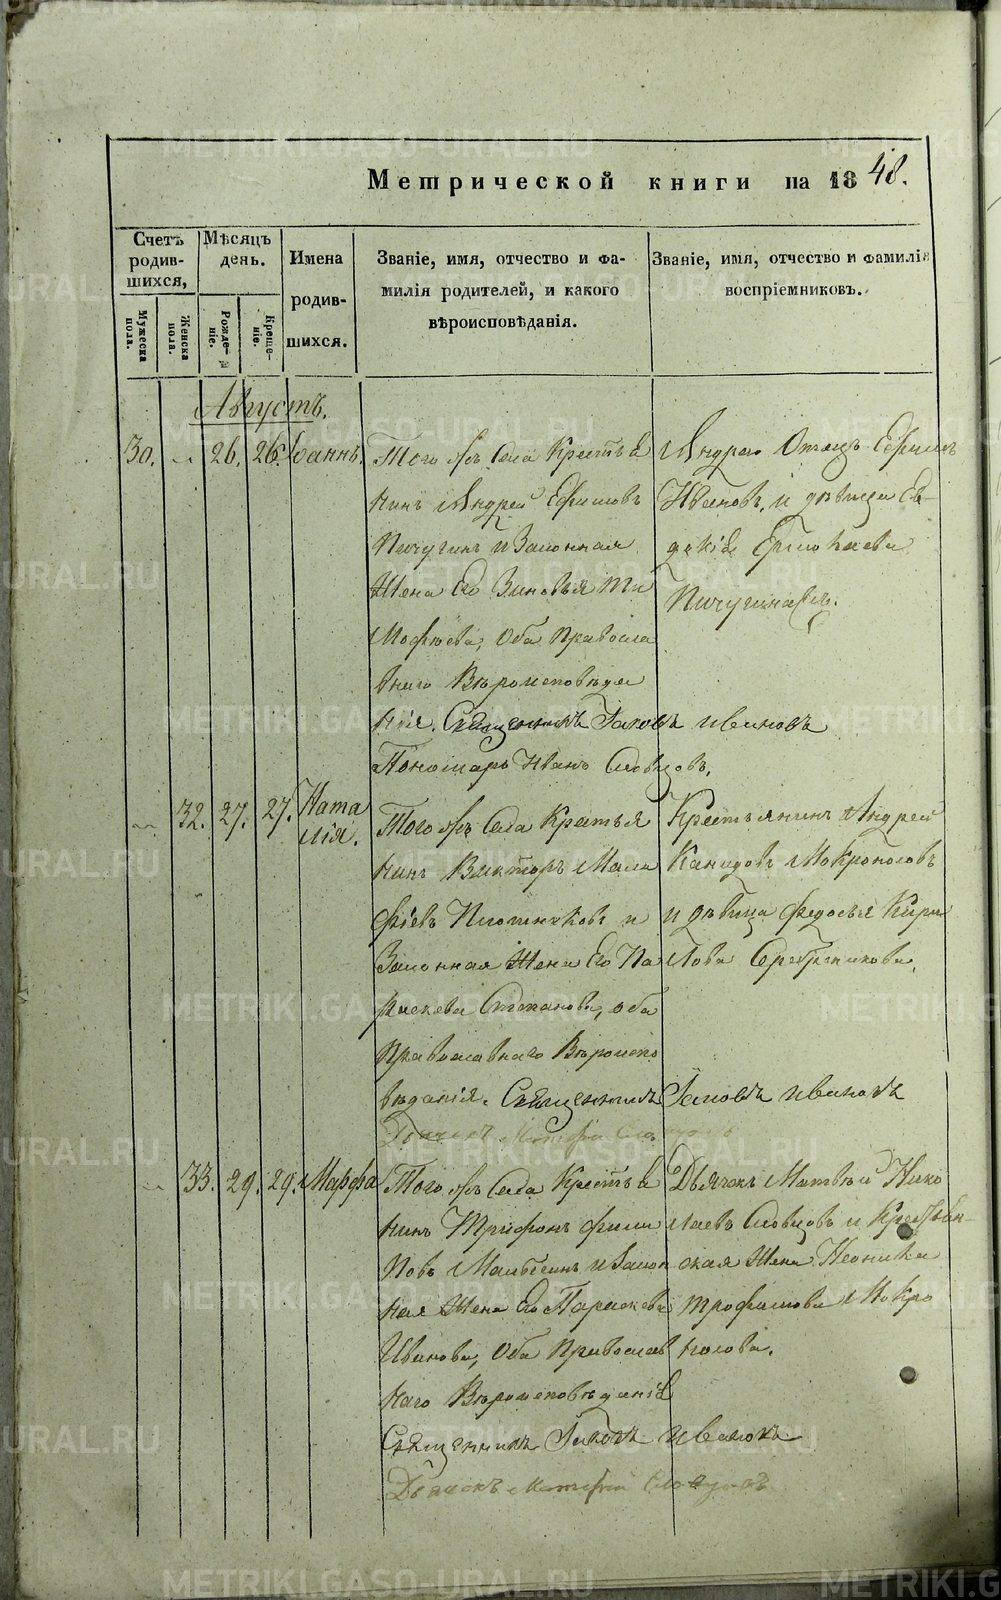 Метрической книги на 1848.
Счетъ родившихся,
Мѣсяцъ день.
Имена родившихся.
Званіе, имя, отчество и фамилія родителей, и какого вѣроисповѣданія.
Званіе, имя, отчество и фамилія воспріемниковъ.
Мужеска пола.
Женска пола.
Рожденіе.
Крещеніе.
Августъ.
30. 26. 26. Іоаннъ.
Того жъ Села Крестья
нинъ Андрей Ефимовъ
Пичугинъ и Законная
Жена Его Зиновья Ти
мофѣева, Оба Правосла
внаго Вѣроисповѣда
нія. Священникъ Іаковъ Ивановъ
Пономарь Иванъ Словцовъ.
Андрея Отецъ Ефимъ
Ивановъ, и дѣвица Ев-
докія Ермолаева
Пичугина
32. 27. 27. Ната
лія.
Того жъ Села Крестья
нинъ Викторъ
Плотниковъ и
Законная Жена Его Па
раскева Степанова, оба
Православнаго Вѣроиспо
вѣданія. Священникъ Іаковъ Ивановъ
Дьячекъ Матфій Словцовъ
Крестьянинъ Андрей
Мокроносовъ
и дѣвица Федосья Кири
лова Серебренникова.
33. 29. 29. Марфа
Того жъ Села Крестья
нинъ Трифонъ Фили
повъ и Закон
ная Жена Его Параскева
Иванова, Оба Православ
наго Вѣроисповѣданія
Священникъ Іаковъ Ивановъ
Дьячекъ Матфій Словцовъ
Дьячекъ Матвѣй Нико
лаевъ Словцовъ и Крестьян-
ская Жена Неонила
Трофимова Мокро
носова.
METRIKI.GASO-URAL.RU